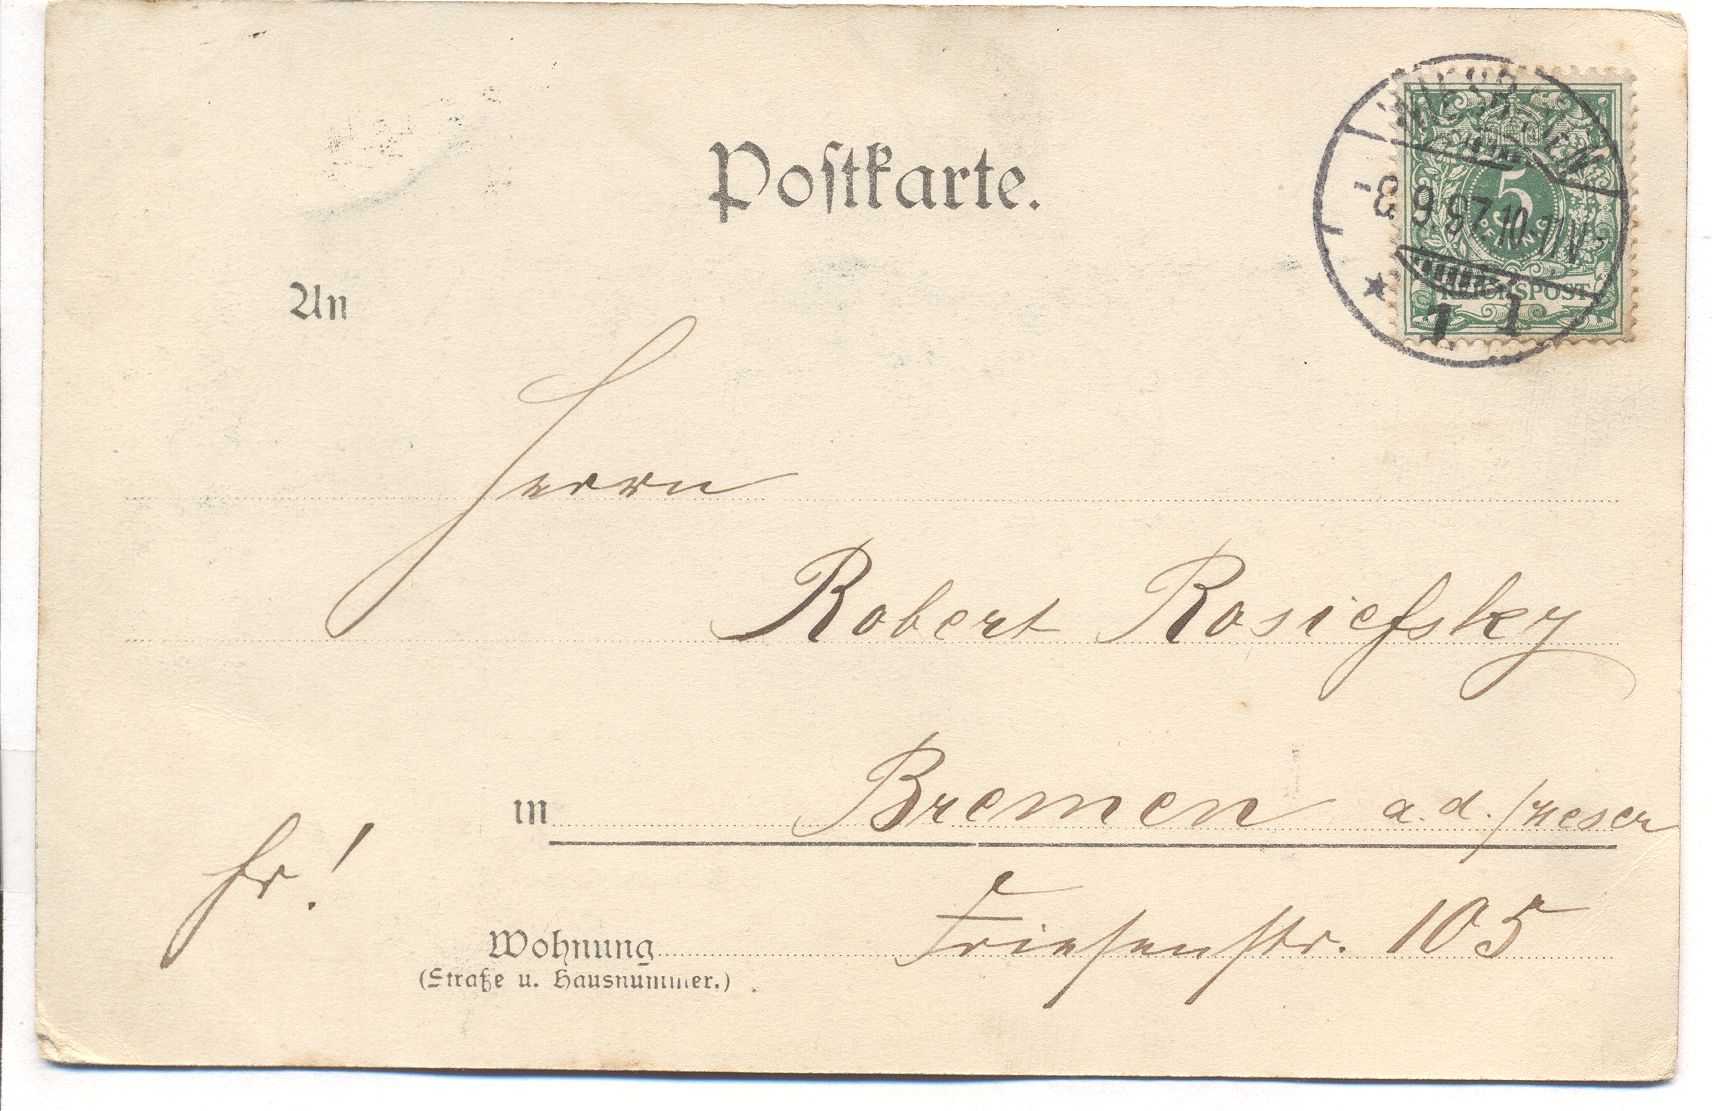 Postkarte.
WIESBADEN
8. 9. 97. 10-11 V.
1 1
5
PFENNIG
REICHSPOST
An
Herrn
Robert Rosiefsky
in Bremen a.d./Weser
fr!
Wohnung Friesenstr. 105
(Straße u. Hausnummer.)